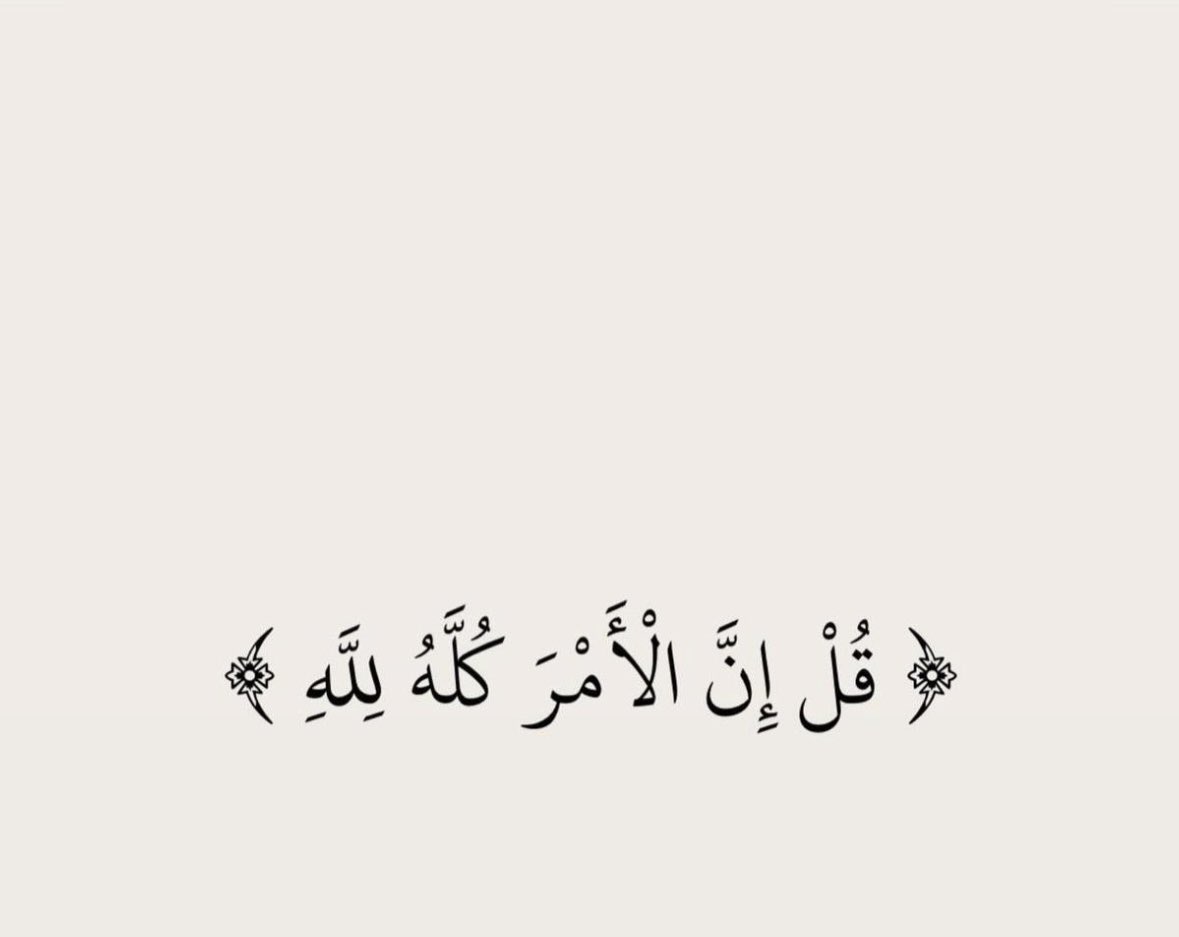 ﴿ قُلْ إِنَّ الْأَمْرَ كُلَّهُ لِلَّهِ ﴾